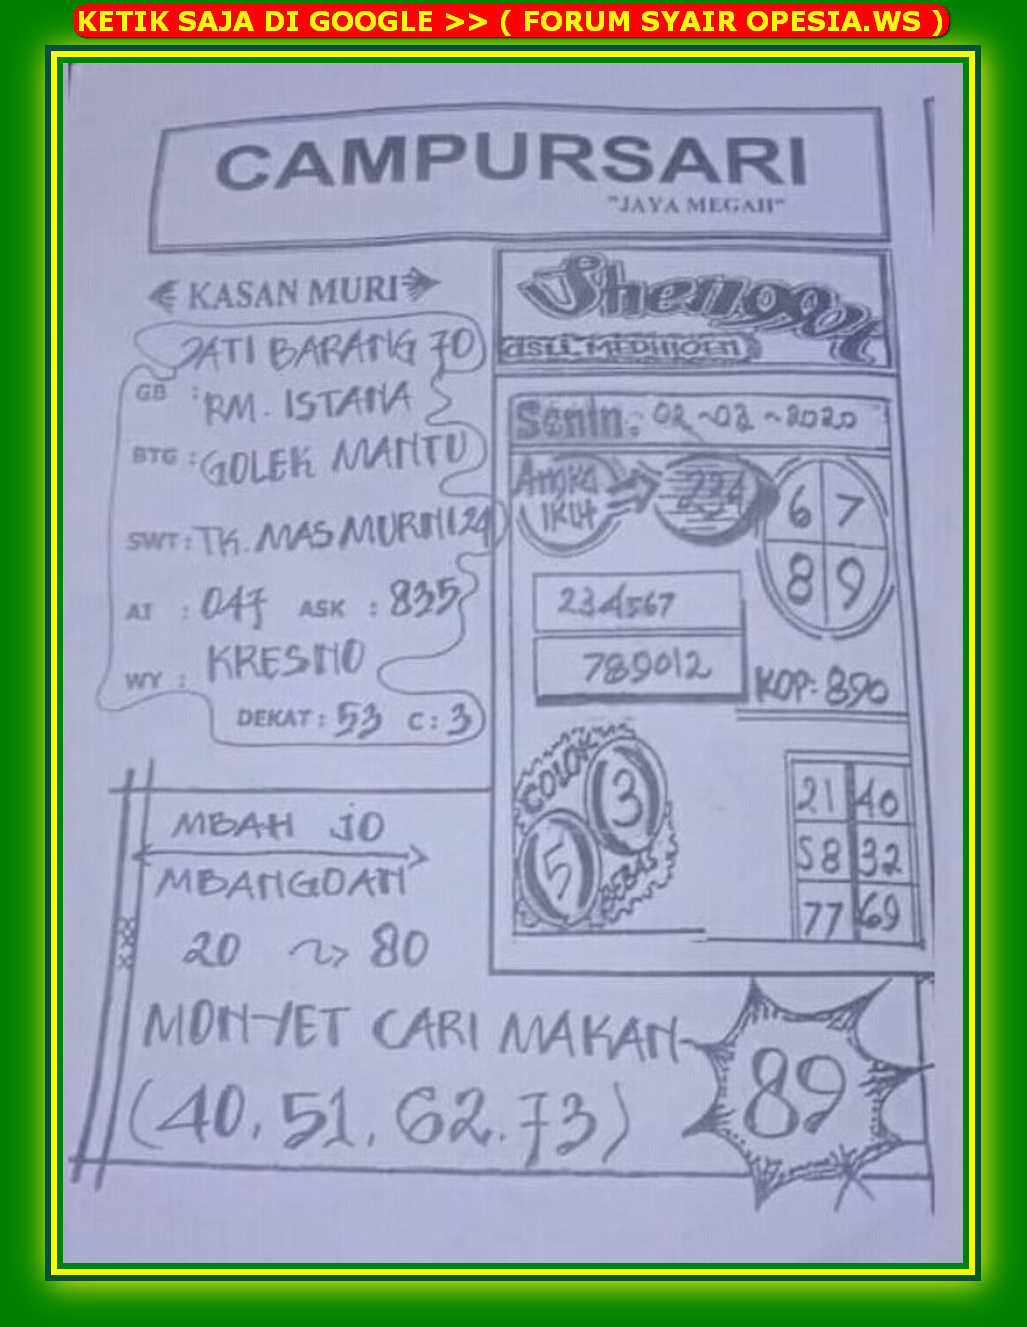 KETIK SAJA DI GOOGLE >> ( FORUM SYAIR OPESIA.WS )
CAMPURSARI
"JAYA MEGAH"
KASAN MURI
JATI BARANG 70
GB : RM. ISTANA
BTG : GOLEK MANTU
SWT : TK. MAS MURNI 24
AI : 047 ASK : 835
WY : KRESNO
DEKAT : 53 C : 3
Shenggot
ASLI MEDIUOEN
Senin : 02-03-2020
Angka
IKUT
224
6 7
8 9
234567
789012
KOP: 890
COLOK
3
5
BEBAS
21 40
58 32
77 69
MBAH JO
MBANGOAN
20 80
MON-YET CARI MAKAN-
(40, 51, 62. 73)
89